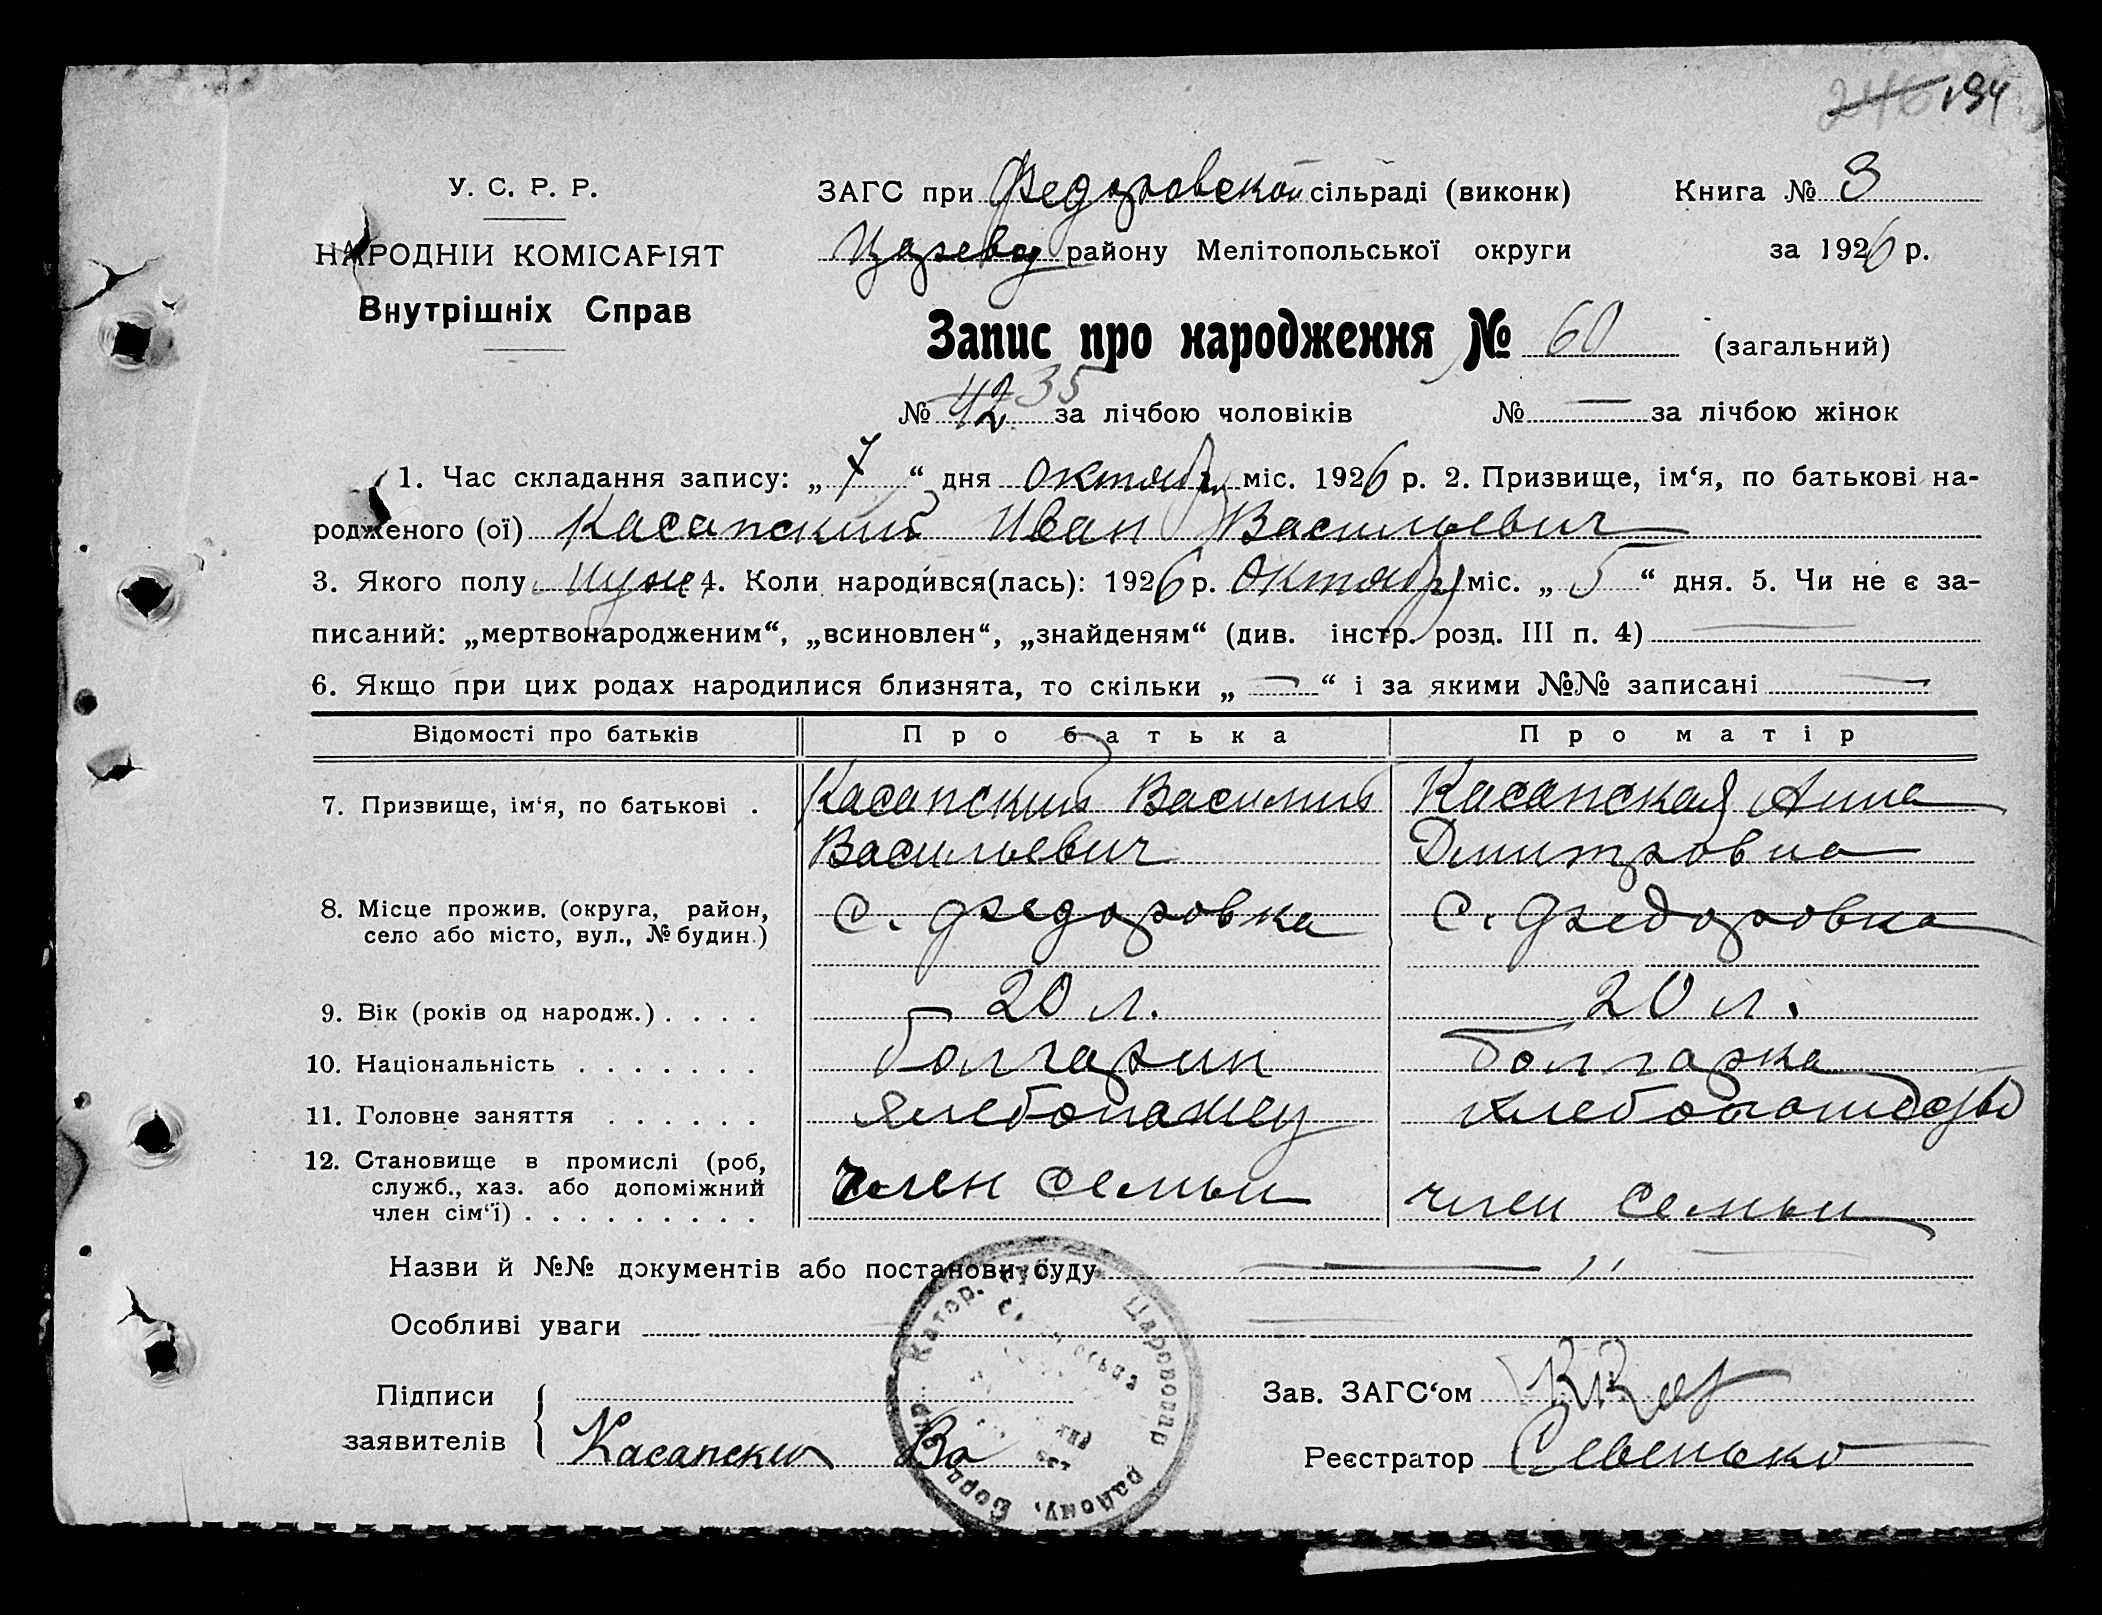 246 194
У. С. Р. Р.
НАРОДНІИ КОМІСАРІЯТ
Внутрішніх Справ
ЗАГС при Федоровской сільраді (виконк) Книга № 3
Царевод району Мелітопольської округи за 1926 р.
Запис про народження № 60 (загальний)
№ 42 35 за лічбою чоловіків № — за лічбою жінок
1. Час складання запису: „ 7 “ дня октября міс. 1926 р. 2. Призвище, ім‘я, по батькові на-
родженого (ої) Касапский Иван Васильевич
3. Якого полу муж 4. Коли народився(лась): 1926 р. Октября міс. „ 5 “ дня. 5. Чи не є за-
писаний: „мертвонародженим“, „всиновлен“, „знайденям“ (див. інстр. розд. III п. 4) —
6. Якщо при цих родах народилися близнята, то скільки „ — “ і за якими №№ записані —
Відомості про батьків Про батька Про матір
7. Призвище, ім‘я, по батькові . Касапский Василий Касапская Анна
Васильевич Дмитровна
8. Місце прожив. (округа, район, с. Федоровка с. Федоровка
село або місто, вул., № будин.)
9. Вік (років од народж.) . . . . 20 л. 20 л.
10. Національність . . . . . . . болгарин болгарка
11. Головне заняття . . . . . . хлебопашец
12. Становище в промислі (роб, член семьи член семьи
служб., хаз. або допоміжний
член сім‘ї) . . . . . . . . .
Назви й №№ документів або постанови суду —
Особливі уваги —
Підписи Зав. ЗАГС‘ом
заявителів Касапски Ва Реєстратор
Царевовар району,